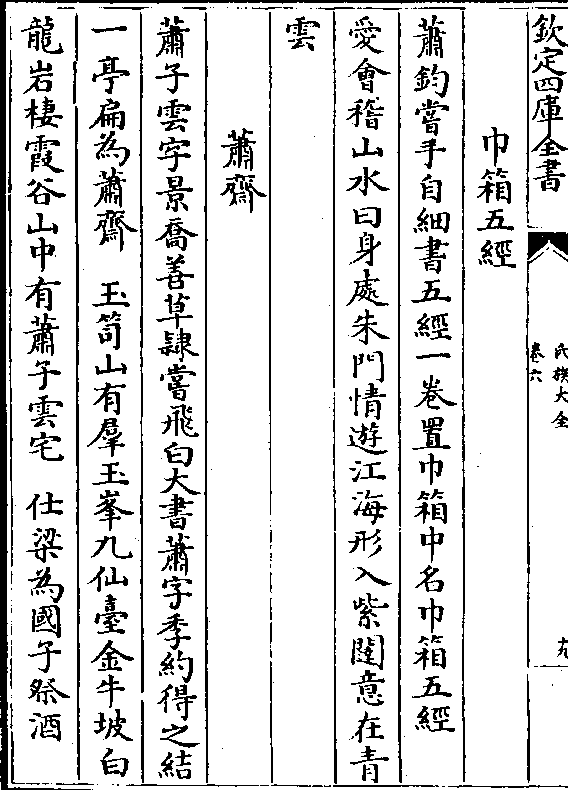 欽定四庫全書
氏族大全
卷六
九
巾箱五經
蕭鈞嘗手自細書五經一卷置巾箱中名巾箱五經
愛會稽山水曰身處朱門情遊江海形入紫闥意在青
雲
蕭齋
蕭子雲字景喬善草隸嘗飛白大書蕭字季約得之結
一亭扁為蕭齋　玉笥山有羣玉峯九仙臺金牛坡白
龍岩棲霞谷山中有蕭子雲宅　仕梁為國子祭酒